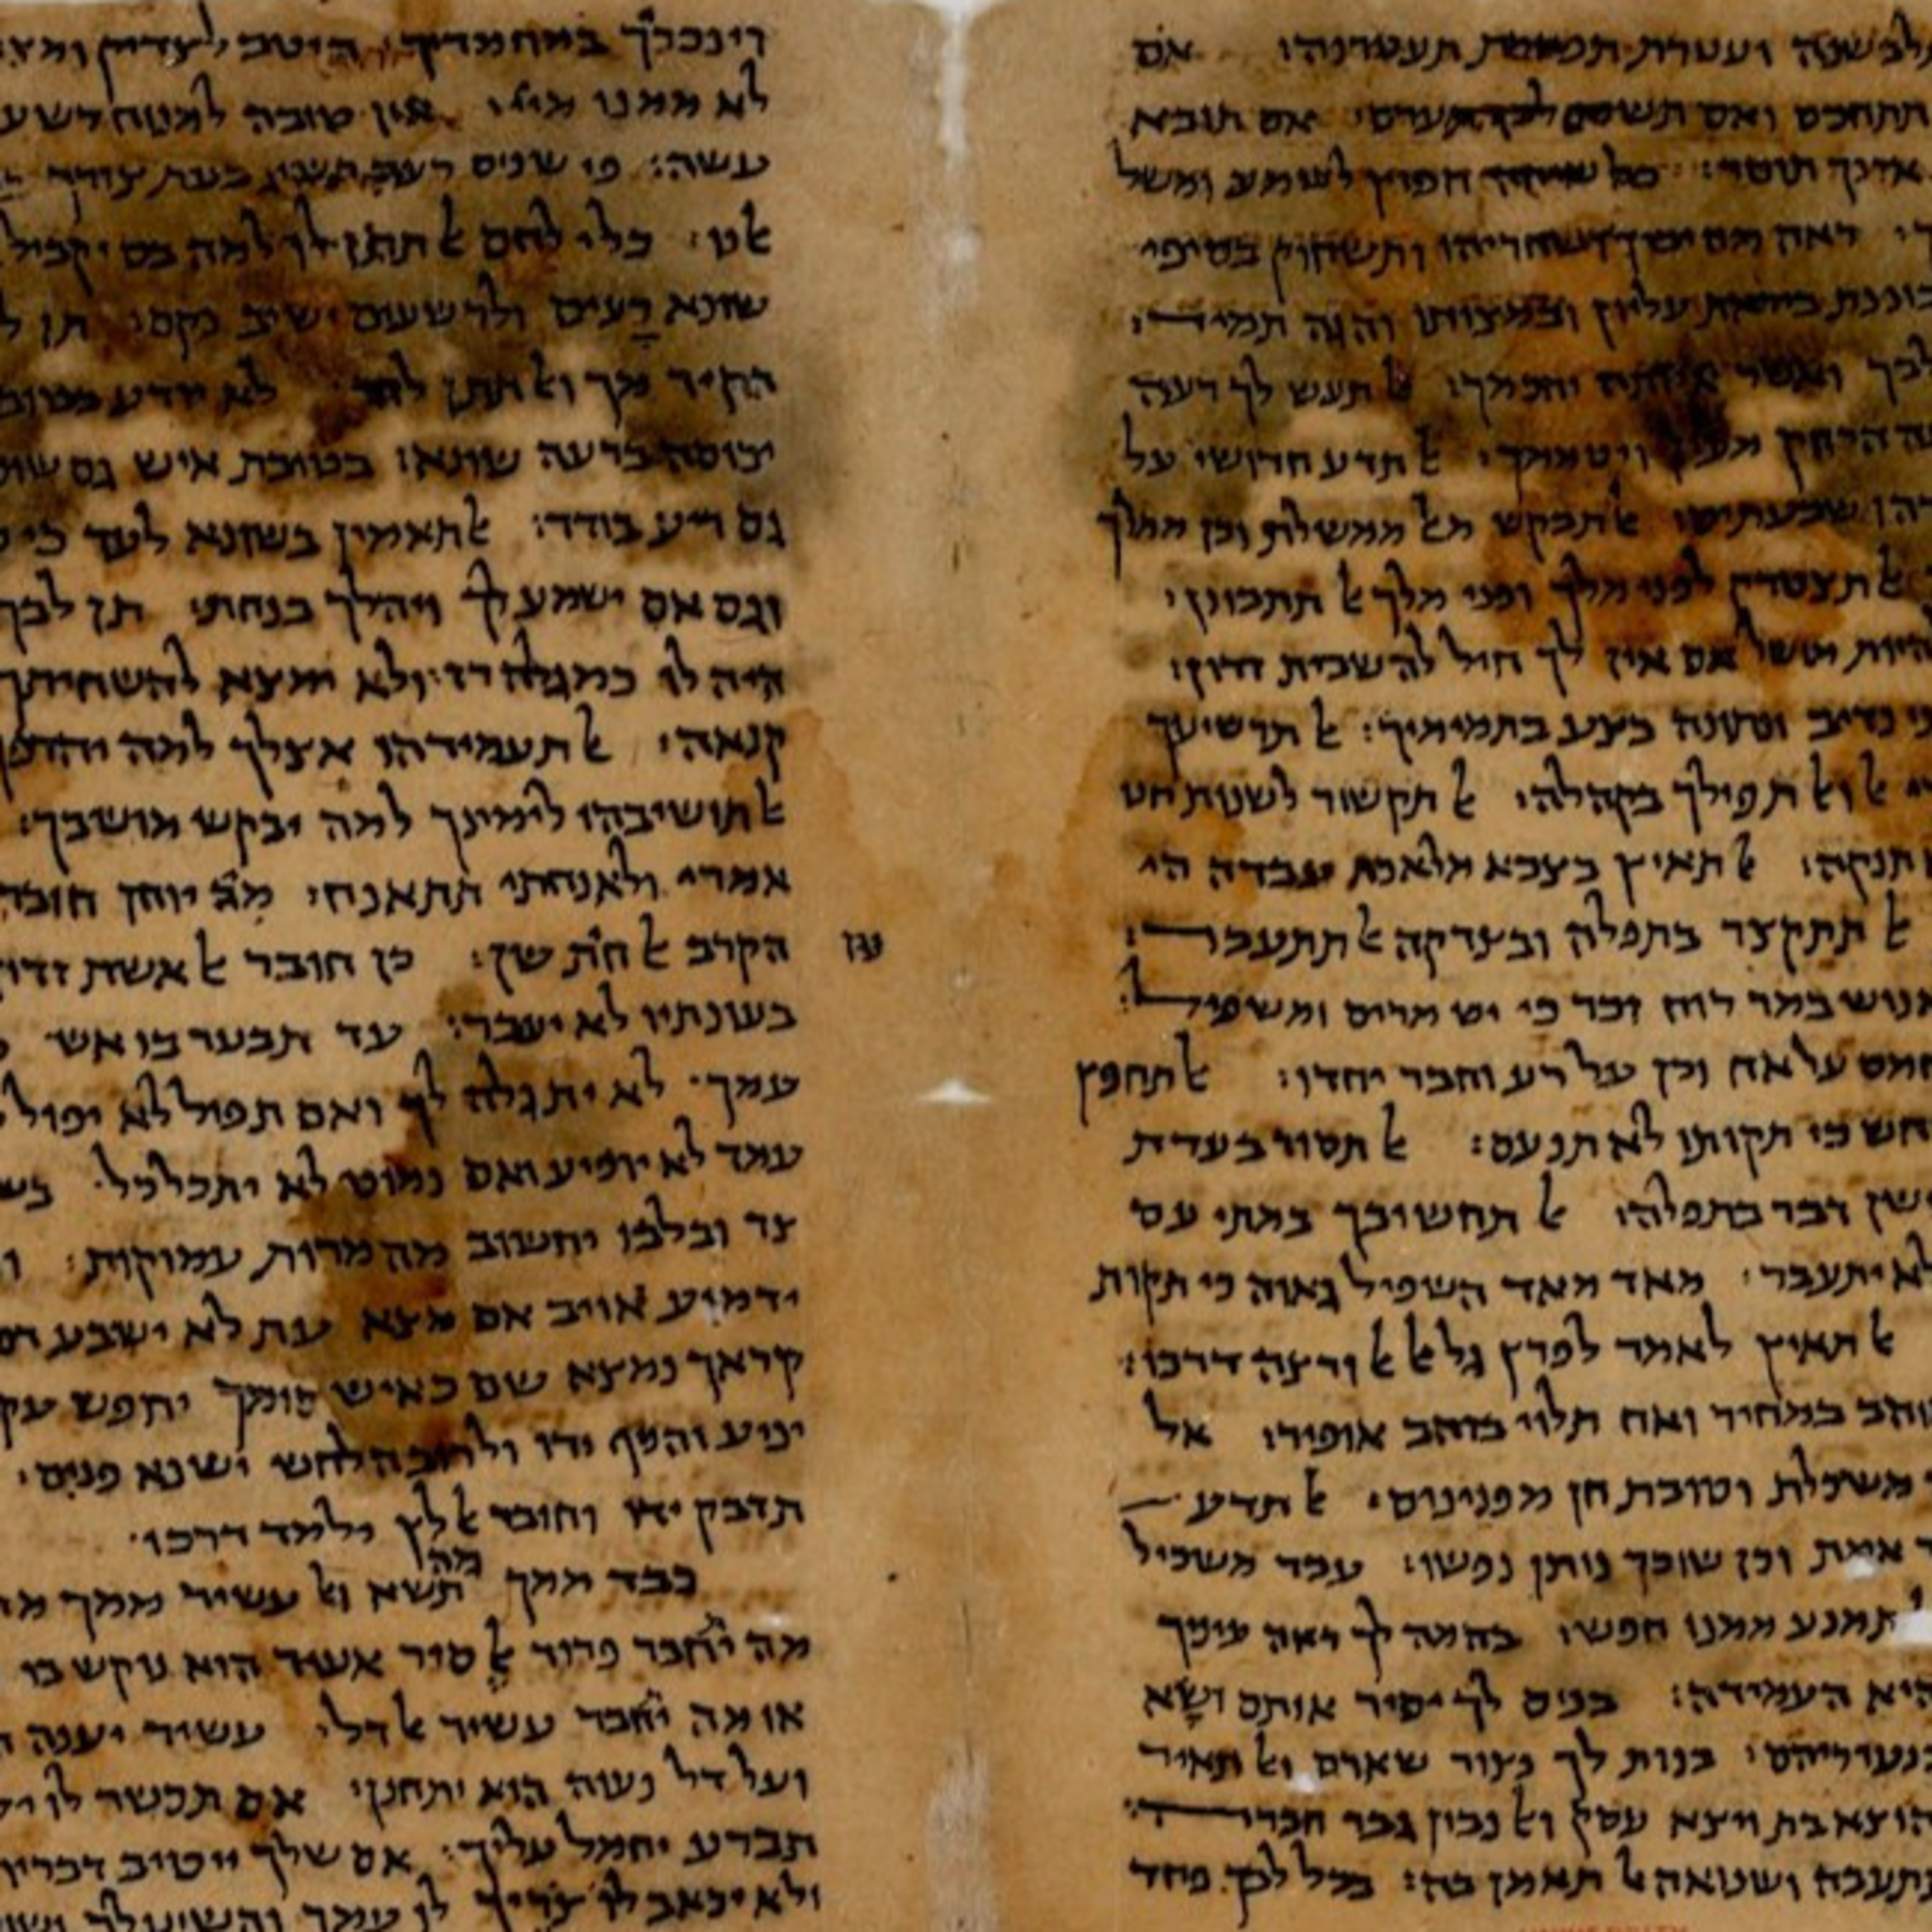 ועטרת תפארת תעטרנה: אם
תתחכם ואם תשים לבך תערם: אם תובא
אזנך תוסר: כל שיחה חפוץ לשמע ומשל
ראה מה יבין ושחריהו ותשחוק בסיפי
ביראת עליון ובמצותו והגה תמיד:
לבך ואשר איותה יחכמך: אל תעש לך רעה
הרחק מעון ויט ממך: אל תדע חרושי על
שבעתים: אל תבקש מאל ממשלת וכן ממלך
אל תצטדק לפני מלך ופני מלך אל תתבונן:
להיות מושל אם אין לך חיל להשבית זדון:
נדיב ונתתה בצע בתמימיך: אל תרשיעך
אל ואל תפילך בקהלה: אל תקשור לשנות חט
תנקה: אל תאיץ בצבא מלאכת עבדה הי
אל תתקצר בתפלה ובצדקה אל תתעבר:
אנוש במר רוח זכר כי יש מרים ומשפיל:
חמס על אח וכן על רע וחבר יחדו: אל תחפץ
כחש כי תקותו לא תנעם: אל תסוד בעדת
דבר בתפלה: אל תחשובך במתי עם
לא יתעבר: מאד מאד השפיל גאוה כי תקות
אל תאיץ לאמר לפרץ גל אל אל ורצה דרכו:
אוהב במחיר ואח תלוי בזהב אופיר: אל
משכלת וטובת חן מפנינים: אל תדע
אמת וכן שוכר נותן נפשו: עבד משכיל
תמנע ממנו חפש: בהמה לך ראה עיניך
היא העמידה: בנים לך יסיר אותם ושא
בנעוריהם: בנות לך נצור שארם ואל תאיר
הוצא בת ויצא עסק ואל נבון גבר חברה:
תתעבה ושנואה אל תאמן בה: בכל לבך פחד
במחמדיך: היטב לצדיק ומצא
לא ממנו מייי אין טובה למנוח רשע
עשה: פי שנים רעה תשיג בעת צורך
אט: כלי לחם אל תתן לו למה בם יקביל
שונא רעים ולרשעים ישיב נקם: תן ל
הקיר מך ואל תתן לזד: לא יודע בטוב
יכוסה ברעה שונא: בטובת איש גם שונ
גם ריע בודד: אל תאמין בשונא לעד כי
וגם אם ישמע לך ויהלך בנחת: תן לבך
היה לו כמגלה רז ולא ימצא להשחיתך
קנאה: אל תעמידהו אצלך למה יהדפך
אל תושיבהו לימינך למה יבקש מושבך:
אמרי ולאנחתי תתאנח: מה יוחן חובר
הקרב אל חית שן: כן חובר אל אשת זדון
בעונתיו לא יעבר: עד תבער בו אש
עמך: לא יתגלה לך ואם תפול לא יפול
עמד לא יופיע ואם נמוט לא יתכלכל:
צר ובלבו יחשוב מהמרות עמוקות:
ידמיע אויב אם מצא עת לא ישבע דם
קראך נמצא שם כאיש סומך יחפש עק
יניע והניף ידו ולרוב הלחש ישנא פנים:
תדבק ידו וחובר אל לץ ילמד דרכו:
כבד ממך מה תשא ואל עשיר ממך מה
מה יתחבר פרור אל סיר אשר הוא נוקש בו
או מה יתחבר עשיר אל דל: עשיר יענה
ועל דל נעוה הוא יתחנן: אם תכשר לו
תכרע יחמל עליך: אם שלך ייטיב דבריו
ולא יכאב לו צריך לו עמך